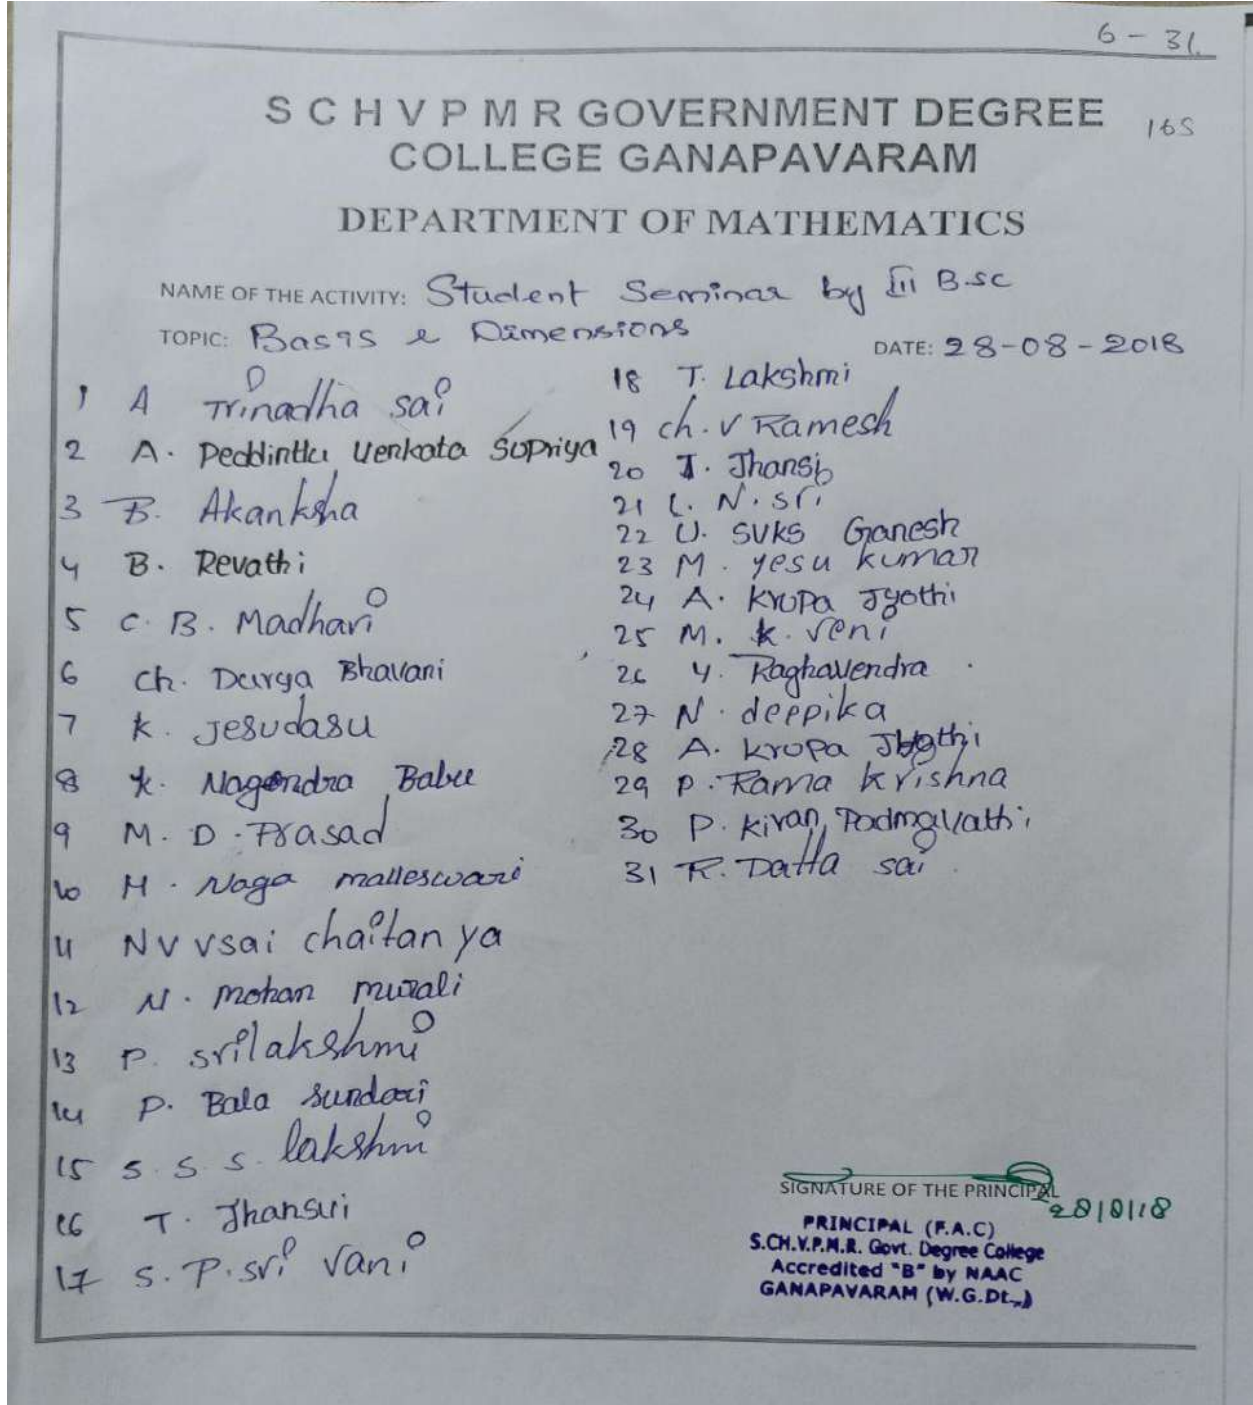 6 - 31.
S C H V P M R GOVERNMENT DEGREE
165
COLLEGE GANAPAVARAM
DEPARTMENT OF MATHEMATICS
NAME OF THE ACTIVITY: Student Seminar by III B.sc
TOPIC: Basis & Dimensions
DATE: 28-08-2018
1 A Trinadha sai
2 A. Peddintlu Venkata Supriya
3 B. Akanksha
4 B. Revathi
5 C. B. Madhari
6 Ch. Durga Bhavani
7 K. Jesudasu
8 K. Nagendra Babu
9 M. D. Prasad
10 M. Naga malleswari
11 N V V sai chaitanya
12 N. mohan murali
13 P. srilakshmi
14 P. Bala Sundari
15 S. S. S. lakshmi
16 T. Jhansi
17 S. P. sri vani
18 T. Lakshmi
19 ch. V Ramesh
20 T. Jhansi
21 L. N. sri
22 U. SVKS Ganesh
23 M. yesu kumar
24 A. Krupa Jyothi
25 M. K. veni
26 Y. Raghavendra
27 N. deepika
28 A. Krupa Jyothi
29 P. Rama Krishna
30 P. Kiran Padmavathi
31 R. Datta sai
SIGNATURE OF THE PRINCIPAL
28|8|18
PRINCIPAL (F.A.C)
S.CH.V.P.M.R. Govt. Degree College
Accredited "B" by NAAC
GANAPAVARAM (W.G.Dt.,)